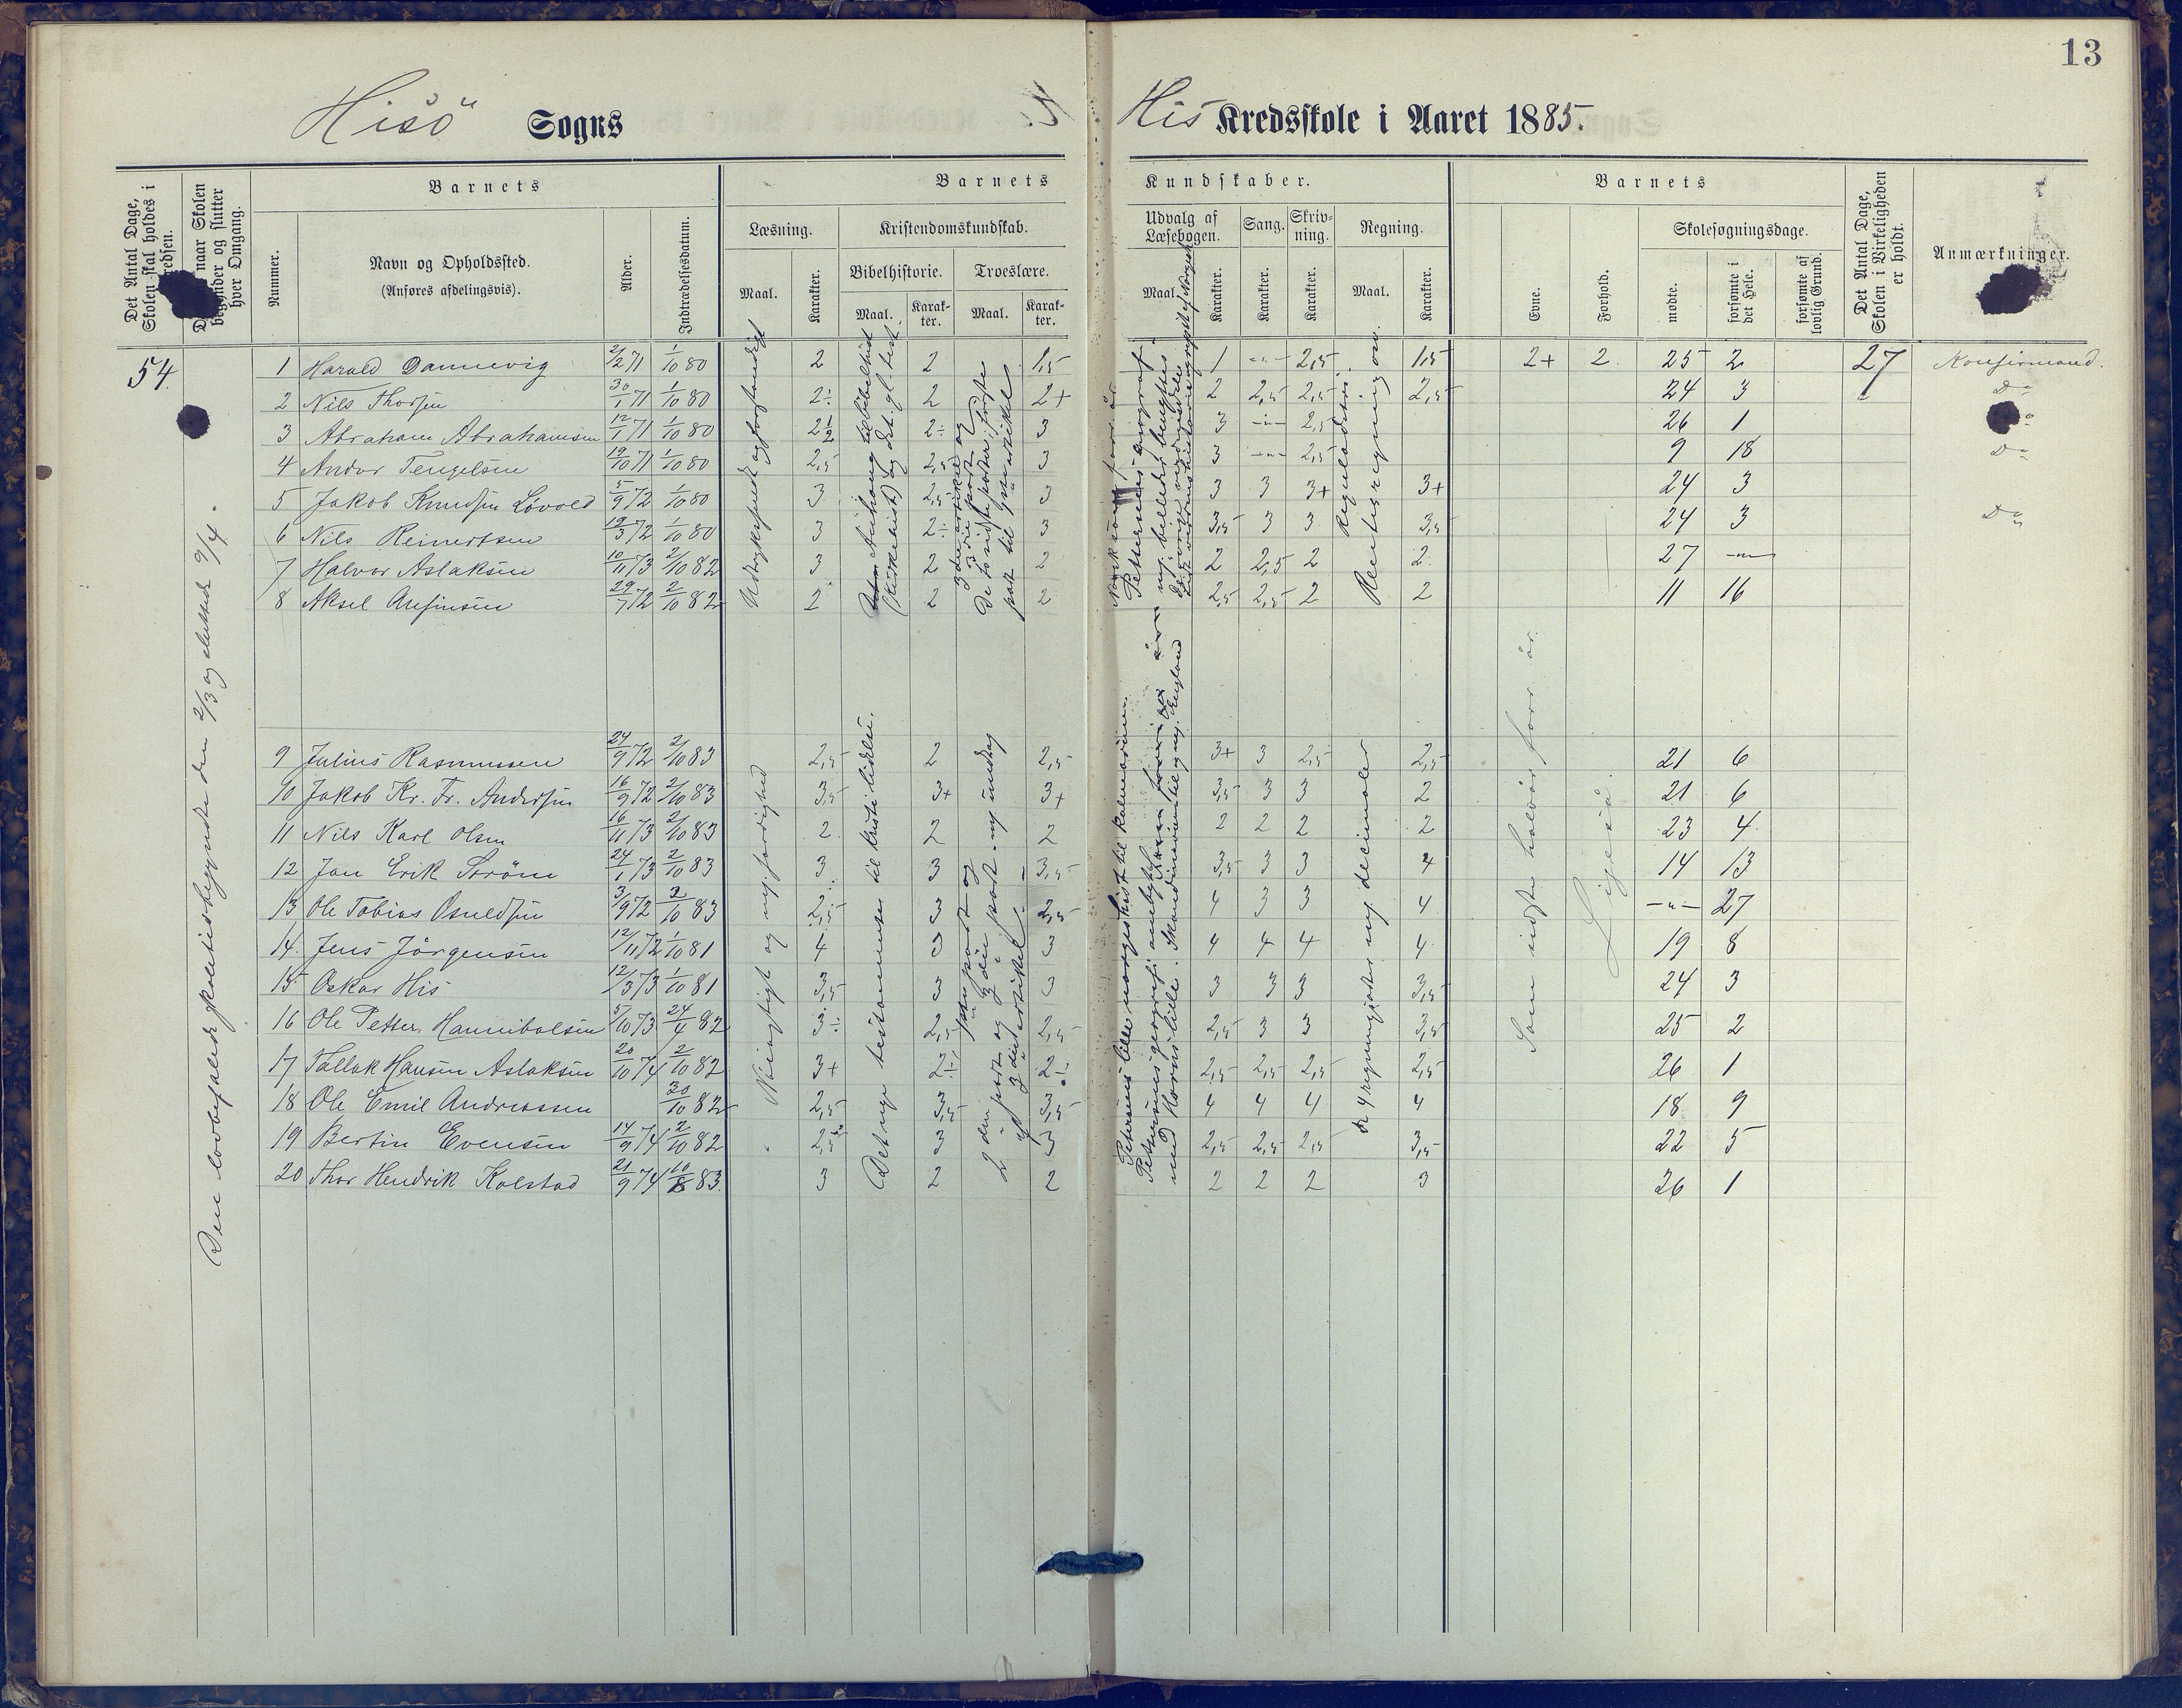 13
Hisö Sogns His Kredsskole i Aaret 1885.
Det Antal Dage, Skolen skal holdes i Kredsen.
naar Skolen begynder og slutter hver Omgang.
Barnets
Nummer.
Navn og Opholdssted.
(Anføres afdelingsvis).
Alder.
Indtrædelsesdatum.
Barnets Kundskaber.
Læsning.
Maal.
Karakter.
Kristendomskundskab.
Bibelhistorie.
Maal.
Karakter.
Troeslære.
Maal.
Karakter.
Udvalg af Læsebogen.
Maal.
Karakter.
Sang.
Karakter.
Skrivning.
Karakter.
Regning.
Maal.
Karakter.
Barnets
Evne.
Forhold.
Skolesøgningsdage.
mødte.
forsømte i det Hele.
forsømte af lovlig Grund.
Det Antal Dage, Skolen i Virkeligheden er holdt.
Anmærkninger.
54
Den lovbefalede skoletid begyndte den 2/3 og sluttede 9/4.
1 Harald Dannevig 2/2 71 1/10 80 2 2 1,5 1 -"- 2,5 1,5 2+ 2 25 2 27 Konfirmand.
2 Nils Thorsen 30/1 71 1/10 80 2÷ 2 2+ 2 2,5 2,5 2,5 24 3 Do
3 Abraham Abrahamsen 12/1 71 1/10 80 2½ 2÷ 3 3 -"- 2,5 26 1
4 Andor Tengelsen 19/10 71 1/10 80 2,5 2,5 3 3 -"- 2,5 9 18 Do
5 Jakob Knudsen Løvold 5/9 72 1/10 80 3 2,5 3 3 3 3+ 3+ 24 3
6 Nils Reinertsen 19/3 72 1/10 80 3 2÷ 3 3,5 3 3 3,5 24 3 Do
7 Halvor Aslaksen 10/11 73 2/10 82 3 2 2 2 2,5 2 2 27 -"-
8 Aksel Arfinsen 29/7 72 2/10 82 2 2 2 2,5 2,5 2 2 11 16
Udtryksfuldt og forstandigt
De to sidste parter, første part til 9de artikel
Rentesregning osv.
9 Julius Rasmussen 24/9 72 2/10 83 2,5 2 2,5 3+ 3 2,5 2,5 21 6
10 Jakob Kr. Fr. Andersen 16/9 72 2/10 83 3,5 3+ 3+ 3,5 3 3 2 21 6
11 Nils Karl Olsen 16/11 73 2/10 83 2 2 2 2 2 2 2 23 4
12 Jan Erik Strøm 24/1 73 2/10 83 3 3 3,5 3,5 3 3 4 14 13
13 Ole Tobias Osuldsen 3/9 72 2/10 83 2,5 3 2,5 4 3 3 4 -"- 27
14 Jens Jörgensen 12/11 72 1/10 81 4 3 3 4 4 4 4 19 8
15 Oskar His 12/3 73 1/10 81 3,5 3 3 3 3 3 3,5 24 3
16 Ole Petter Hannibalsen 5/10 73 24/4 82 3÷ 2,5 2,5 2,5 3 3 3,5 25 2
17 Tallak Hansen Aslaksen 20/10 74 2/10 82 3+ 2÷ 2÷ 2,5 2,5 2,5 2,5 26 1
18 Ole Emil Andreassen 30/10 82 2,5 3,5 3,5 4 4 4 4 18 9
19 Bertin Evensen 14/9 74 2/10 82 2,5 3 3 2,5 2,5 2,5 3,5 22 5
20 Thor Hendrik Kolstad 21/9 74 10/8 83 3 2 2 2 2 2 3 26 1
Nöiagtigt og nogenlunde færdighed
Det nye testamente til Kristi lidelse.
De 4 regningsarter med decimaler
Som sidste halvår forr. år.
Ligeså.